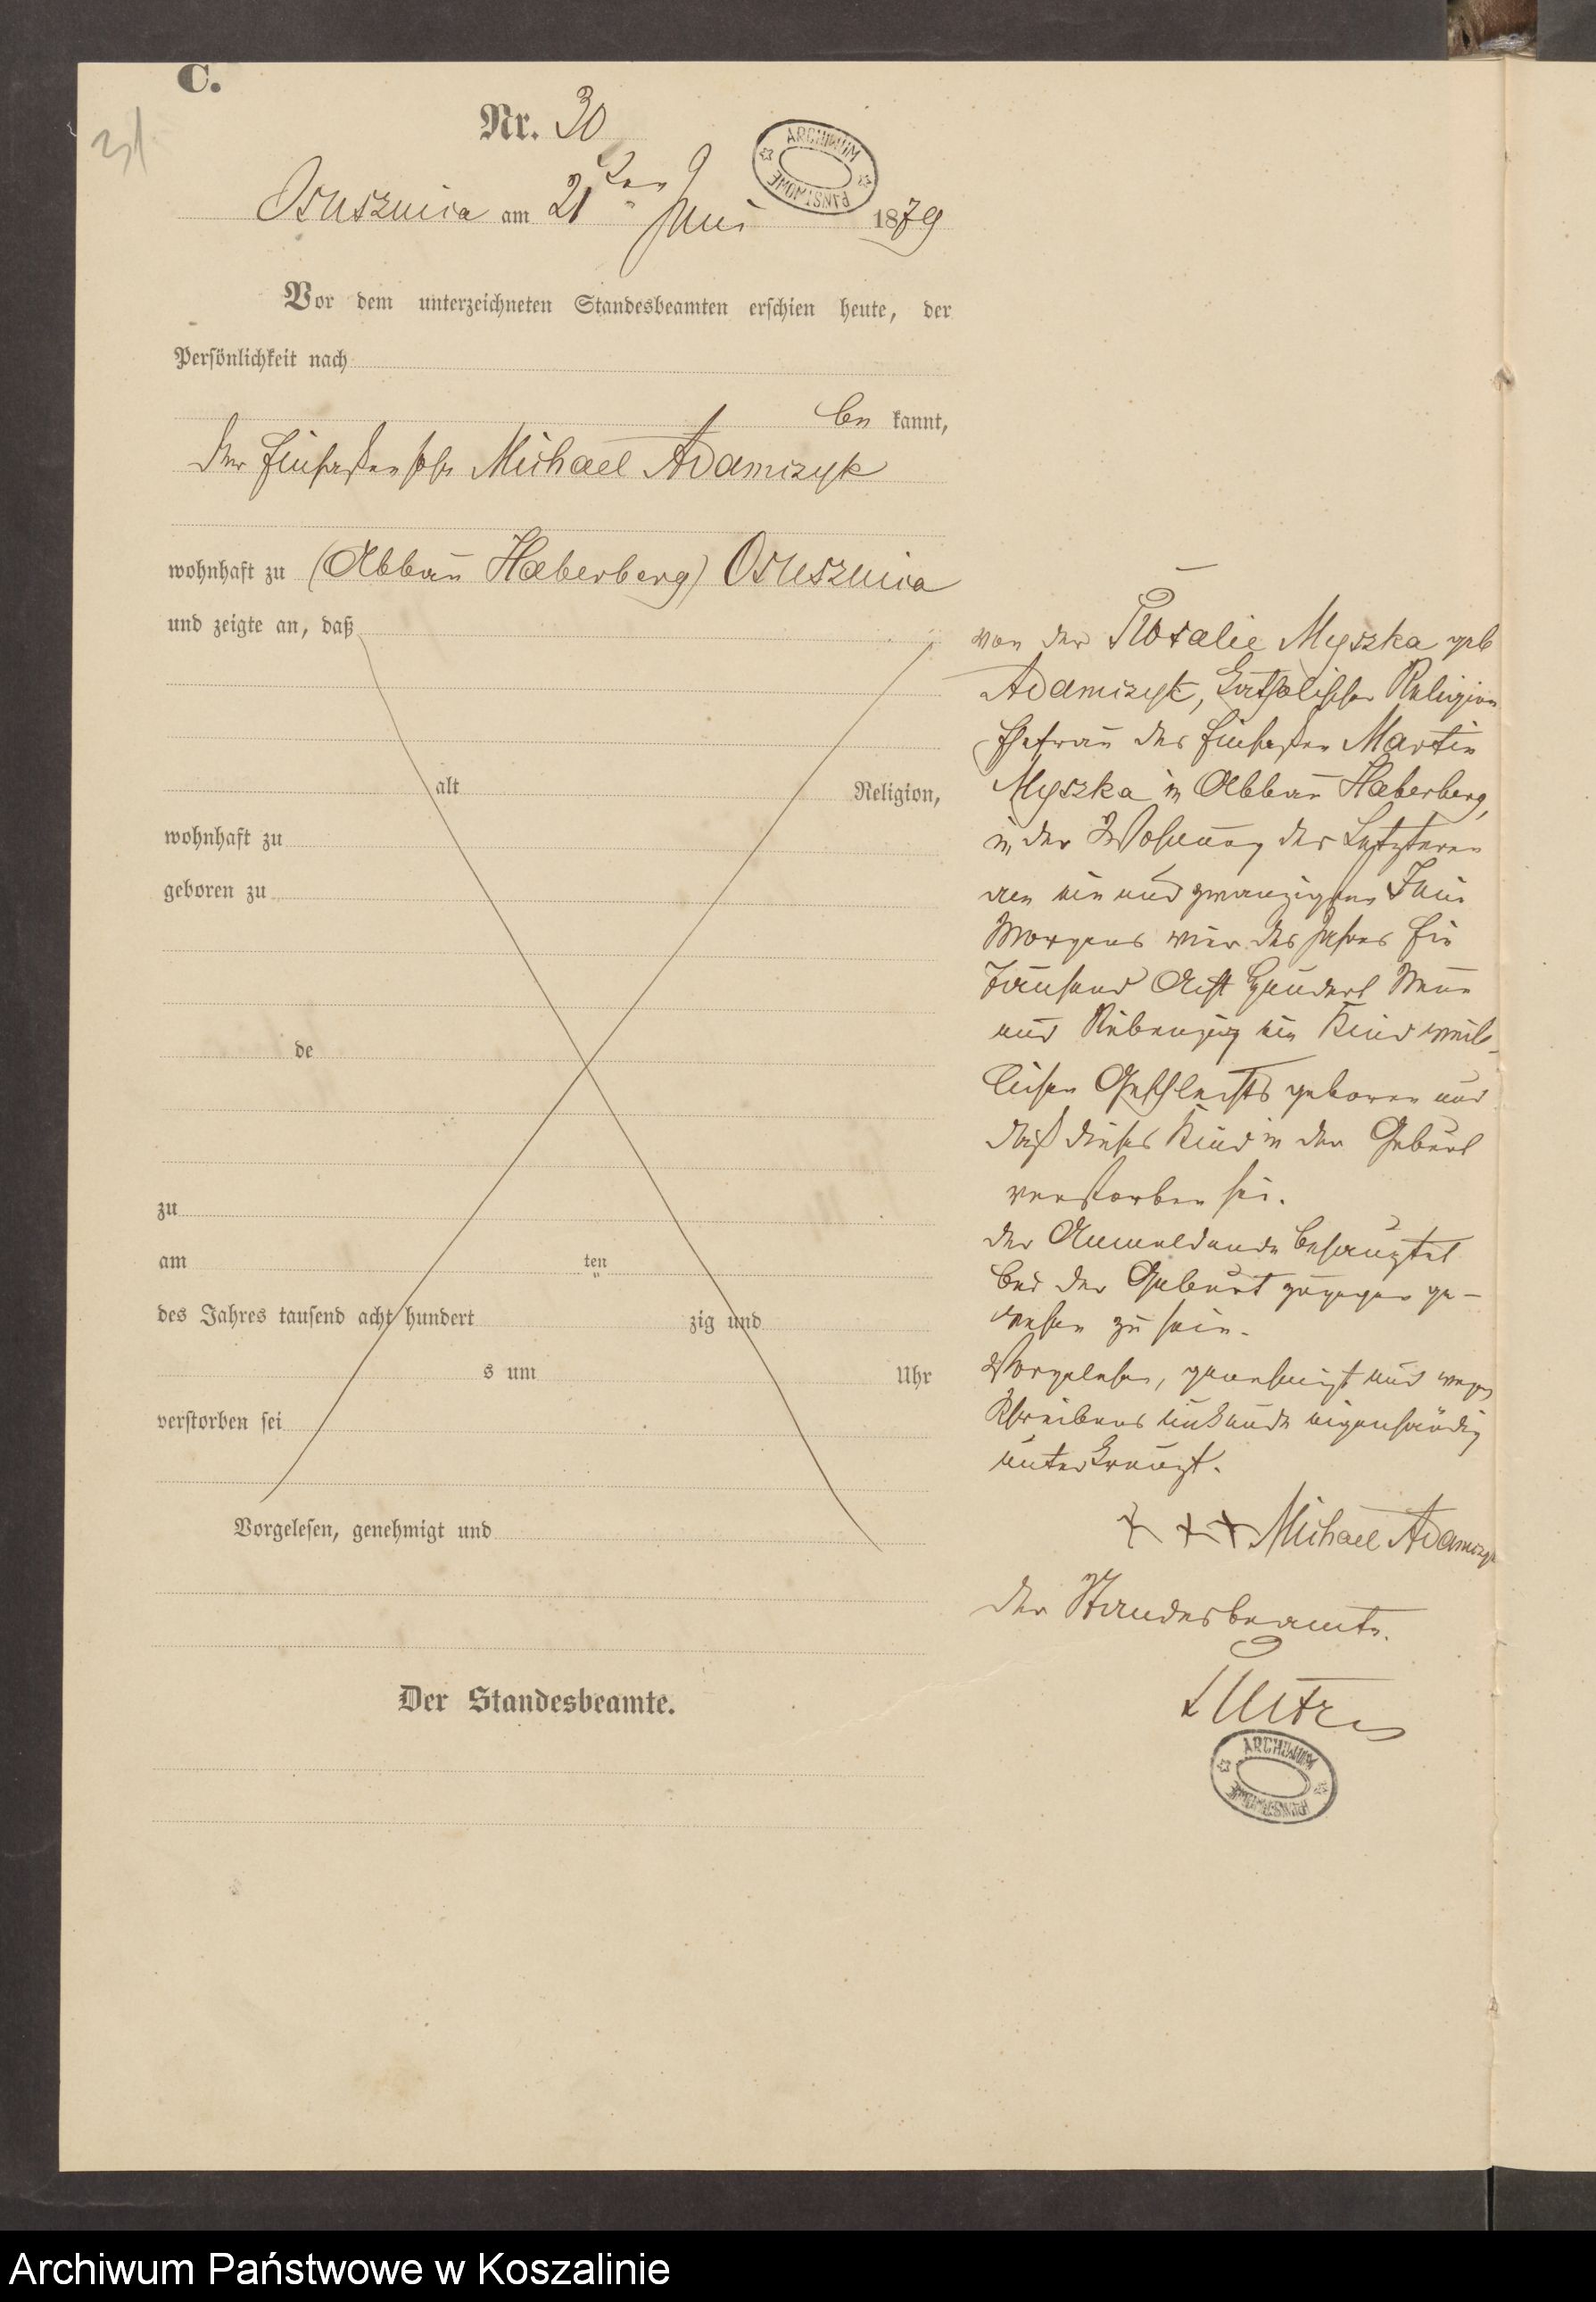 C.
31
Nr. 30
ARCHIWUM PAŃSTWOWE
Osusznica am 21ten Juni 1879
Vor dem unterzeichneten Standesbeamten erschien heute, der
Persönlichkeit nach
be kannt,
der Einsaßensohn Michael Adamczyk
wohnhaft zu (Abbau Haberberg) Osusznica
und zeigte an, daß
alt Religion,
wohnhaft zu
geboren zu
de
zu
am ten
des Jahres tausend acht hundert zig und
s um Uhr
verstorben sei
Vorgelesen, genehmigt und
Der Standesbeamte.
von der Rosalie Myszka geb
Adamczyk, katholischer Religion
Ehefrau des Einsaßen Martin
Myszka in Abbau Haberberg,
in der Wohnung des Letzteren
am ein und zwanzigsten Juni
Morgens vier des Jahres Ein
Tausend Acht Hundert Neun
und Siebenzig ein Kind weib-
lichen Geschlechts geboren und
daß dieses Kind in der Geburt
verstorben sei.
der Anmeldende behauptet
bei der Geburt zugegen ge-
wesen zu sein.
Vorgelesen, genehmigt und wegen
Schreibens unkunde eigenhändig
unterkreuzt.
+ + + Michael Adamczyk
der Standesbeamte.
ARCHIWUM PAŃSTWOWE
Archiwum Państwowe w Koszalinie